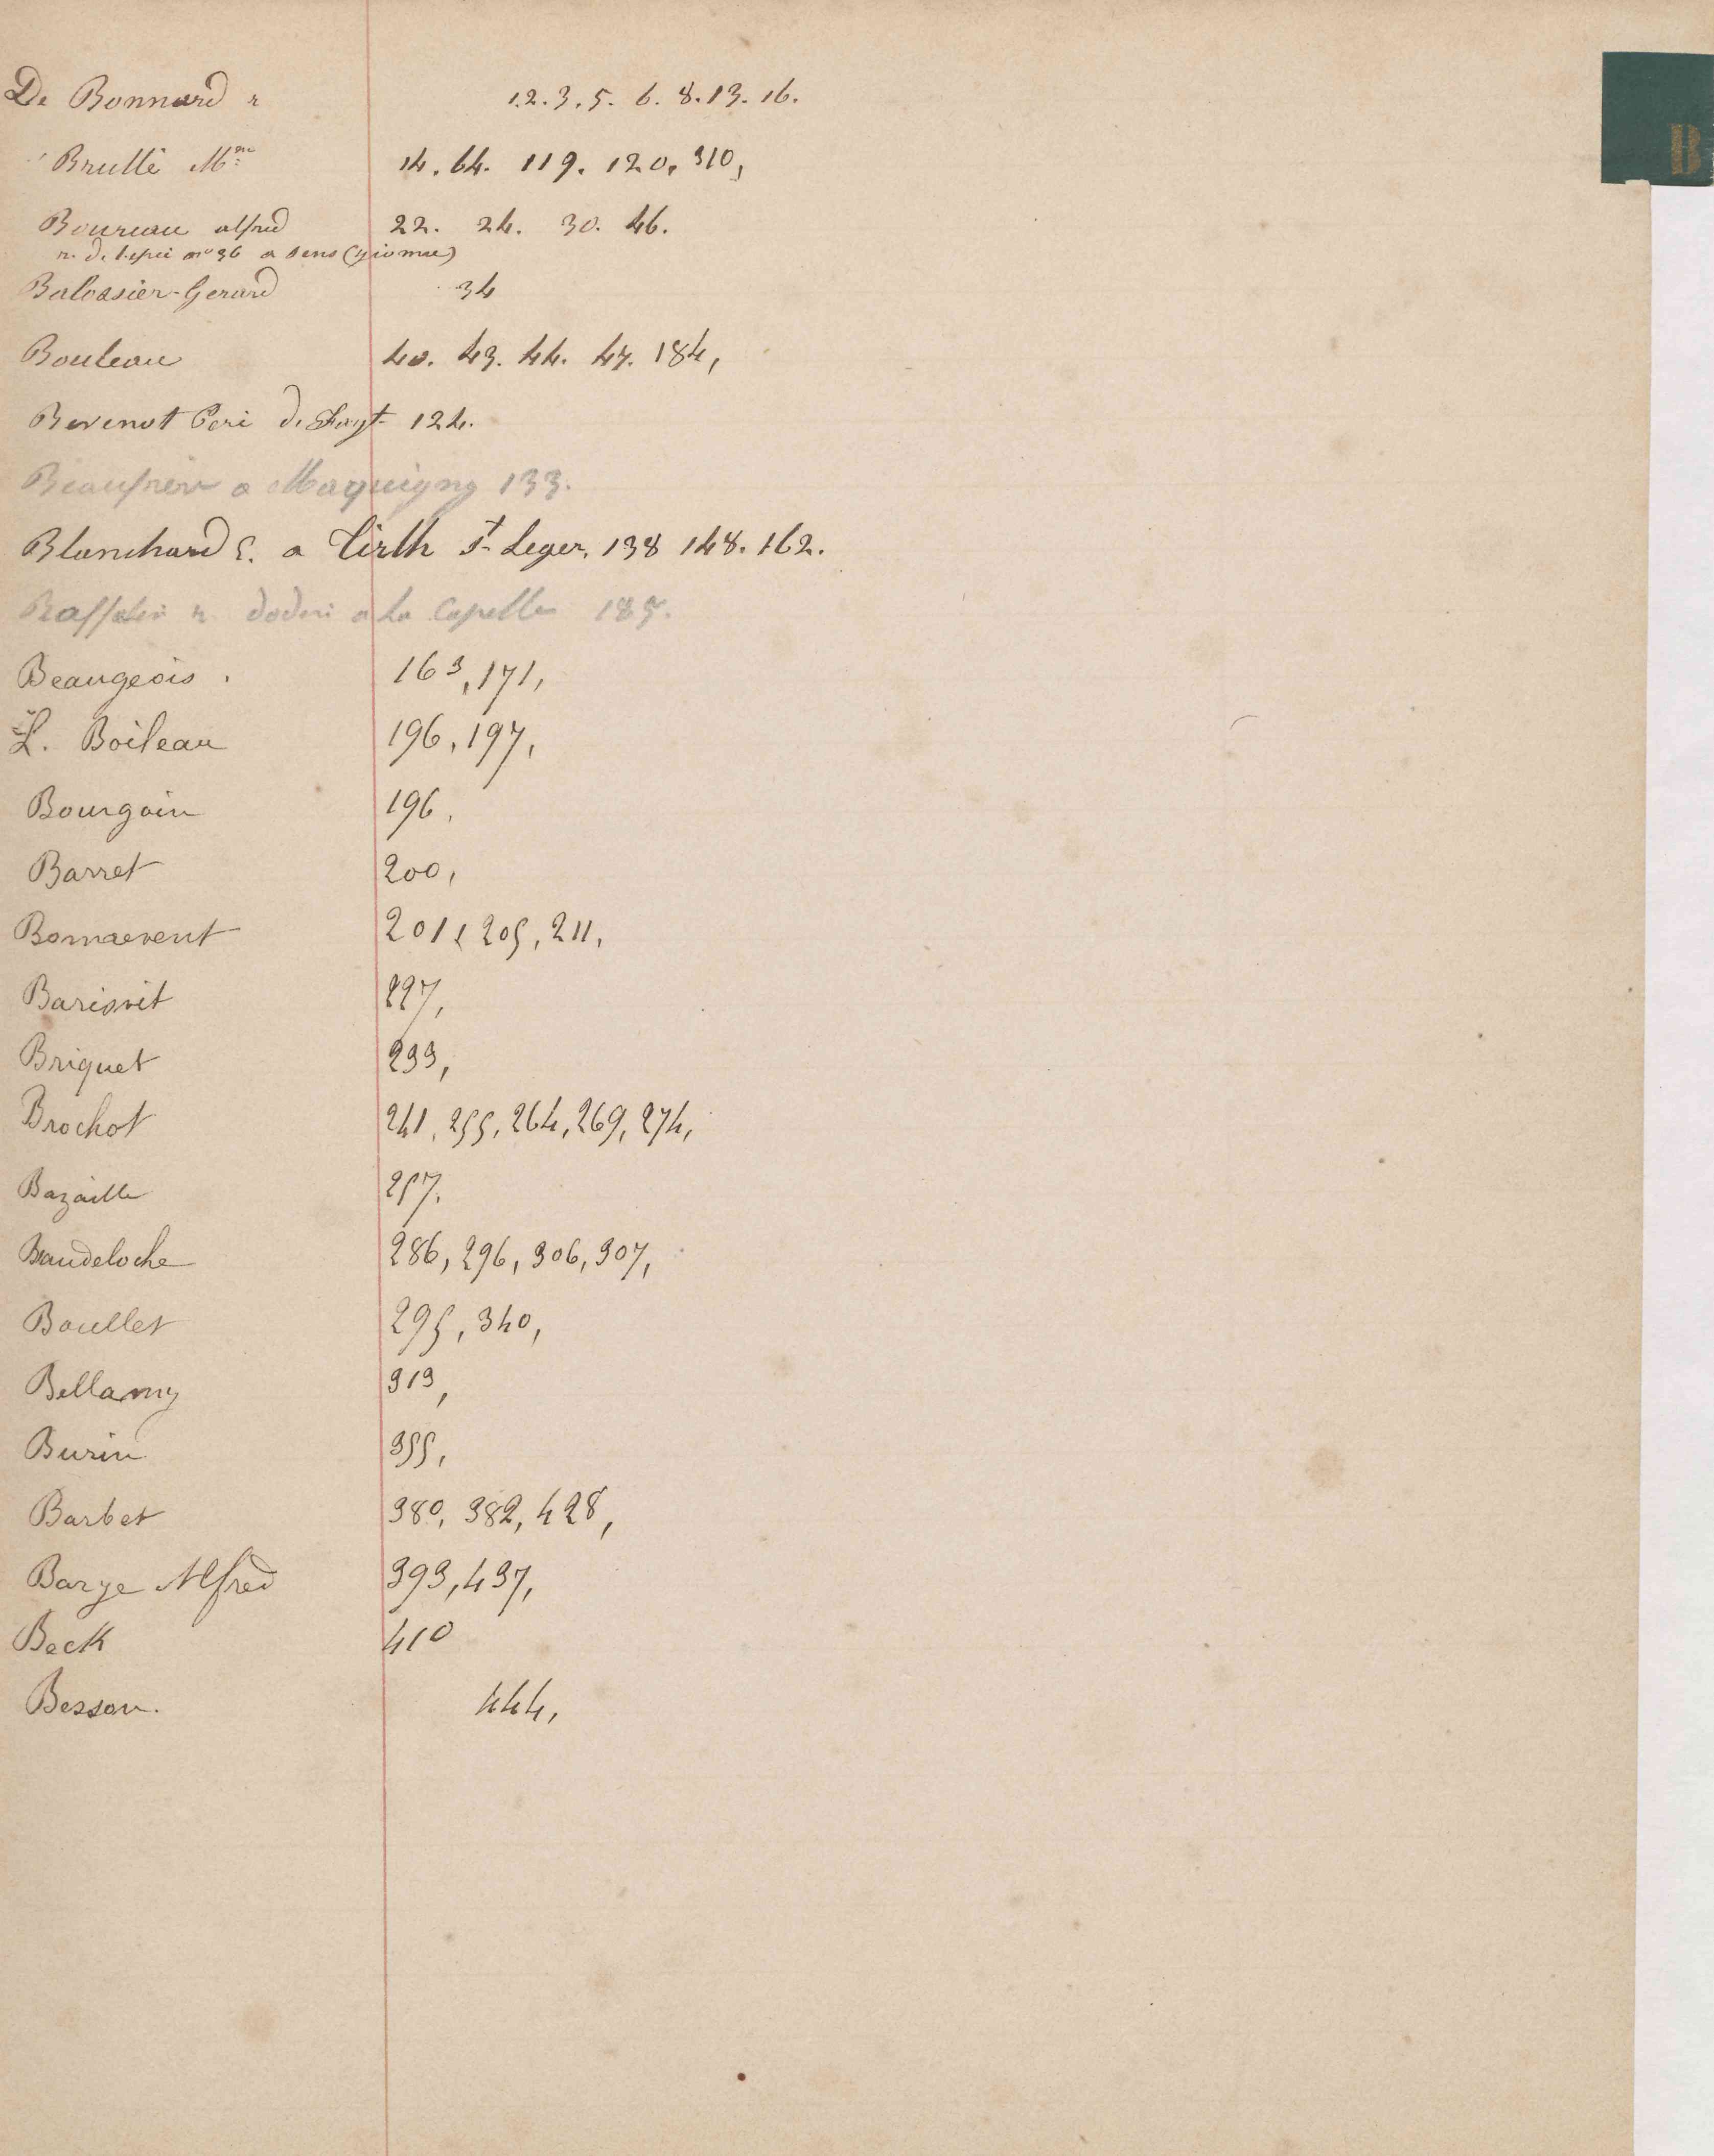 De Bonnard r 1.2.3.5.6.8.13.16.
Brullé Mme 14.64.119.120.310,
Boureau alfred 22. 24. 30. 46.
r. de no 36 a Sens (yionne)
Balossier-Gerard 34
Bouleau 40. 43. 44. 47. 184,
Bevenot Peré de 124.
Beaufrere a Maquigny 133.
Blanchard E. a Cirth St Leger, 138 148. 162.
a la Capelle 187.
Beaugeois. 163,171,
L. Boileau 196,197,
Bourgoin 196.
Barret 200,
Bonnaevent 201, 205, 211,
Barisvit 227,
Briquet 233,
Brochot 241, 255, 264, 269, 274,
Bazaille 257.
Baudeloche 286, 296, 306, 307,
Boullet 295, 340,
Bellamy 313,
Burin 355,
Barbet 380, 382, 428,
Barye Alfred 393, 437,
Beck 410
Besson. 444,
B